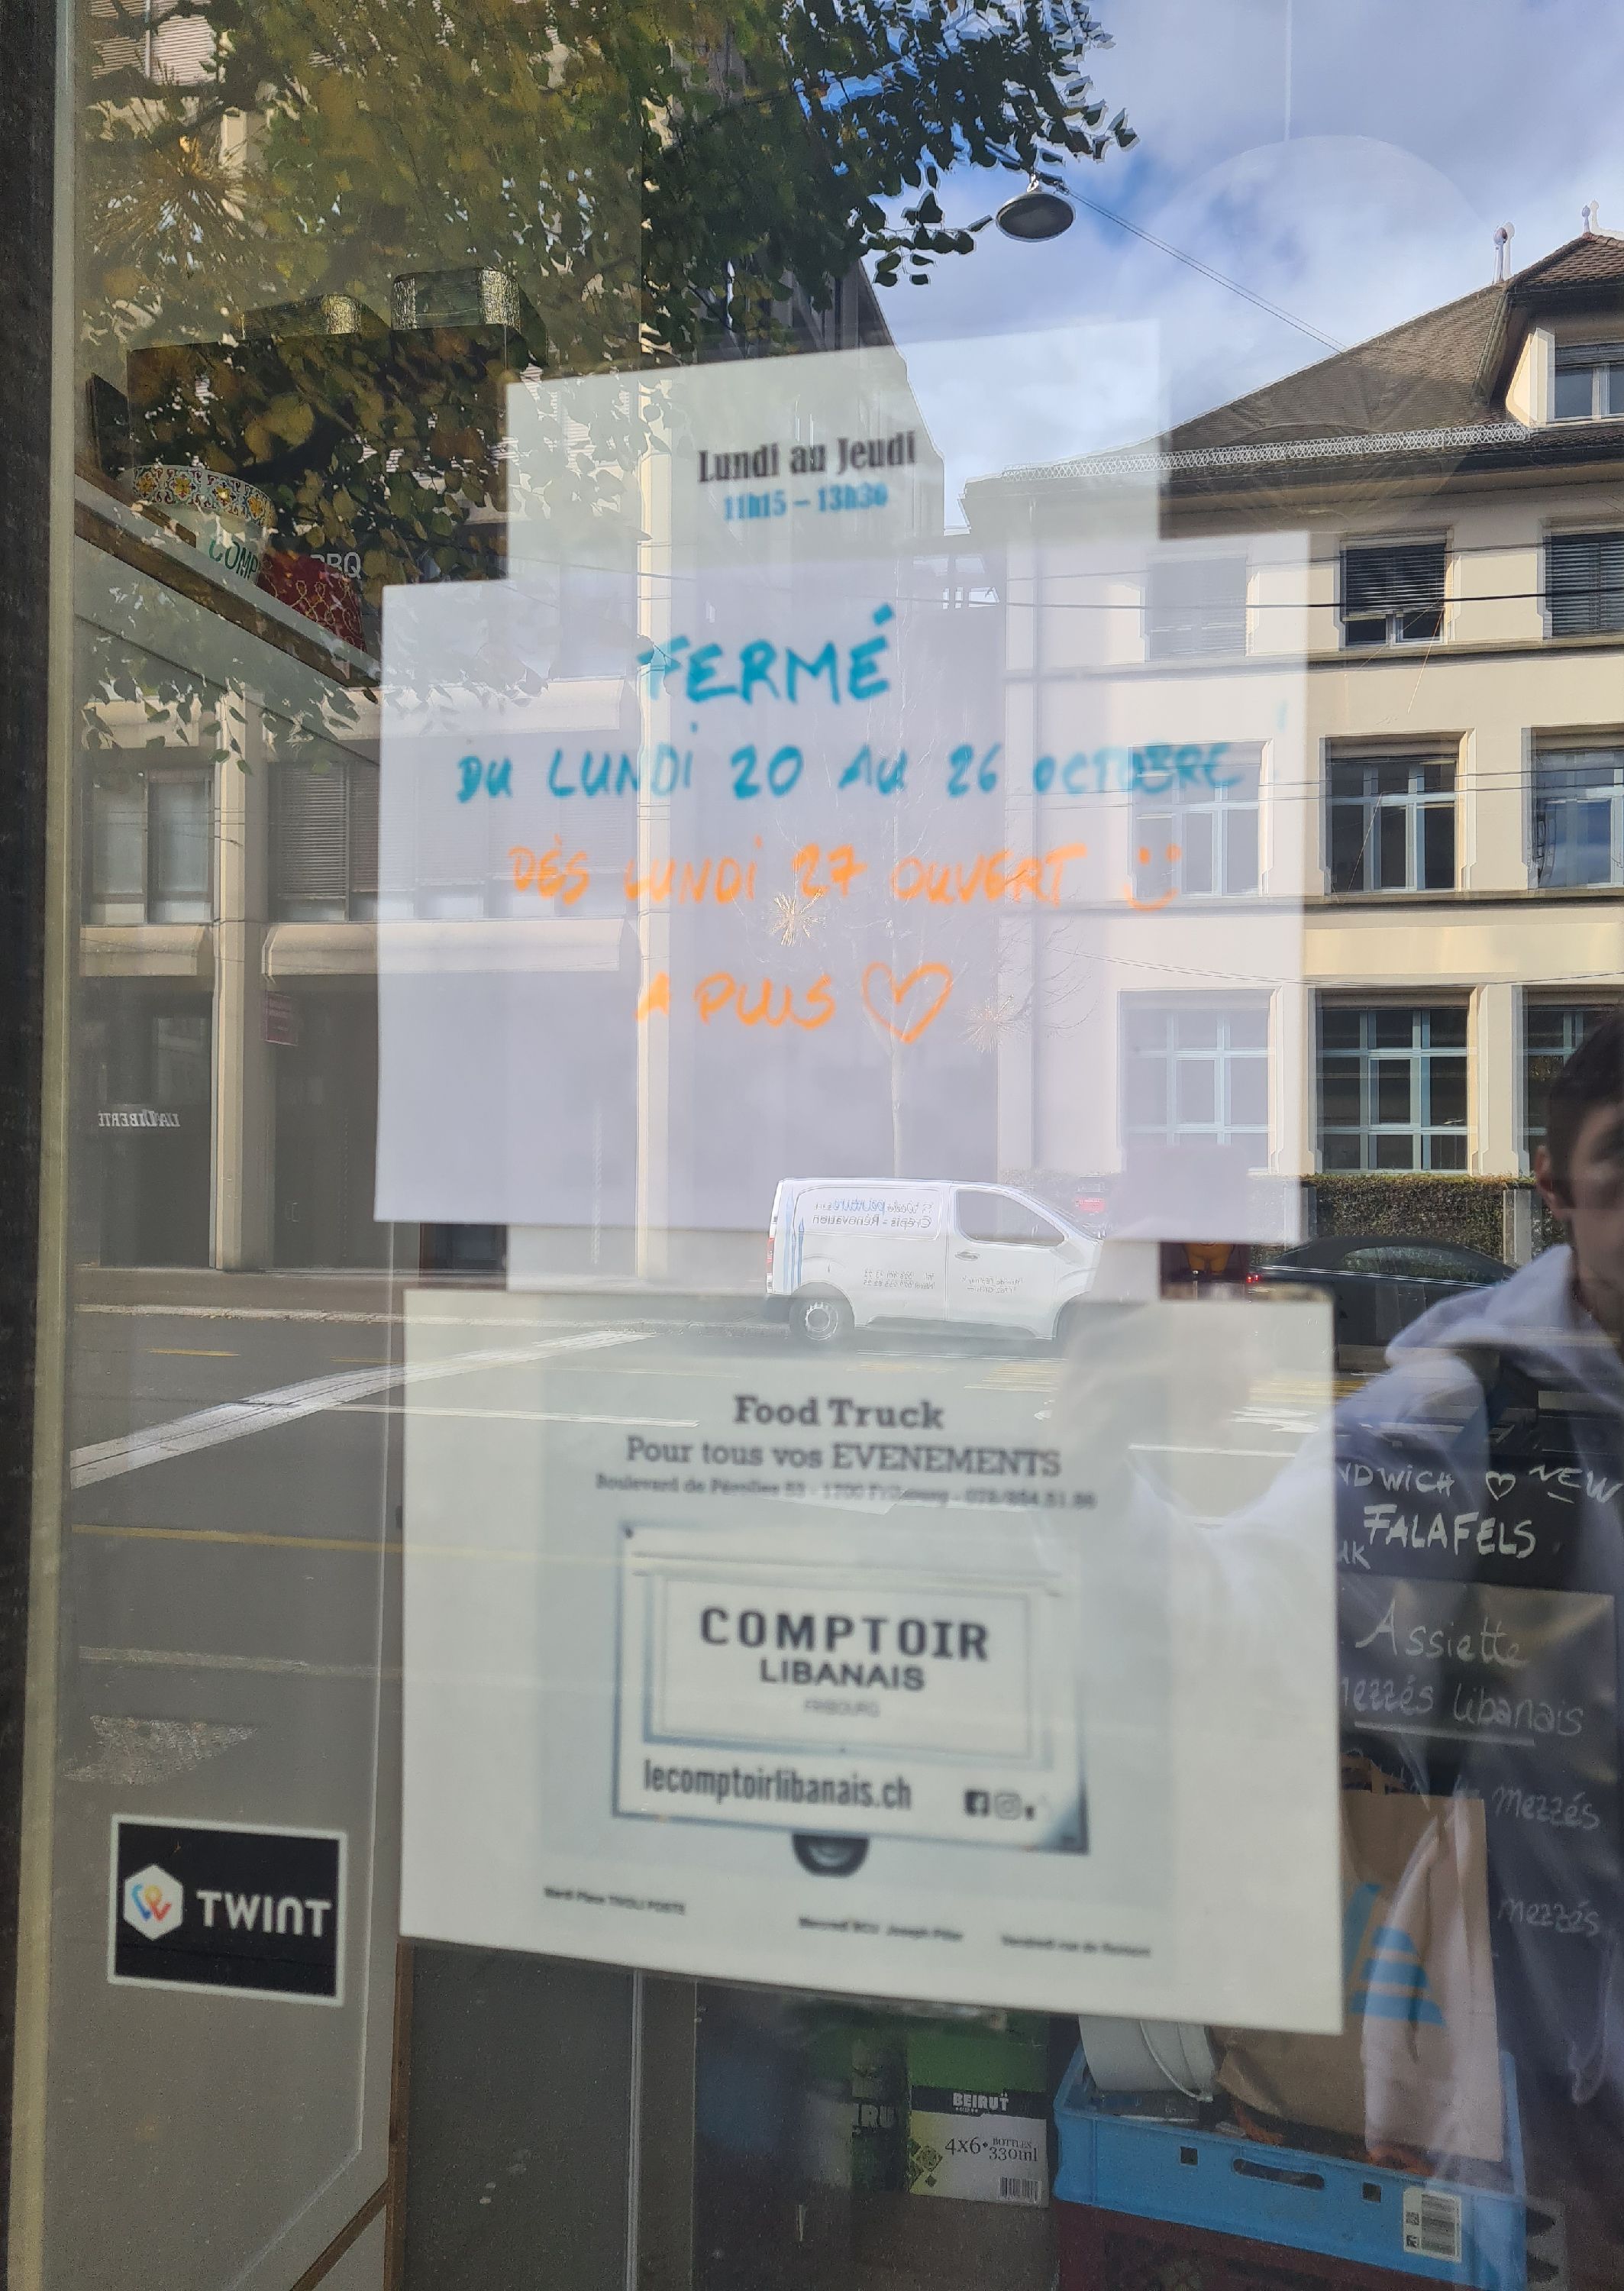 Lundi au Jeudi
11h15 – 13h30
COMP
BBQ
FERMÉ
DU LUNDI 20 AU 26 OCTOBRE !
DÈS LUNDI 27 OUVERT :)
A PLUS ♡
LA LIBERTÉ
Crépis - Rénovation
Food Truck
Pour tous vos EVENEMENTS
Boulevard de Pérolles
1700 Fribourg
COMPTOIR
LIBANAIS
FRIBOURG
lecomptoirlibanais.ch
Mardi Place TIVOLI POSTE
Mercredi BCU Joseph Piller
Vendredi rue de Romont
TWINT
NDWICH ♡ NEW
FALAFELS
UK
Assiette
mezzés libanais
mezzés
mezzés
BEIRUT
4x6·BOTTLES 330ml